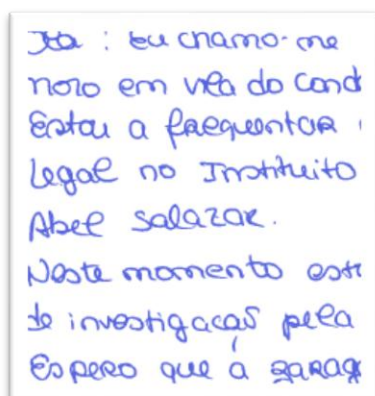 : Eu chamo-me
moro em vila do Cond
Estou a frequentar
Legal no Instituito
Abel Salazar.
Neste momento est
de investigação pela
Espero que a